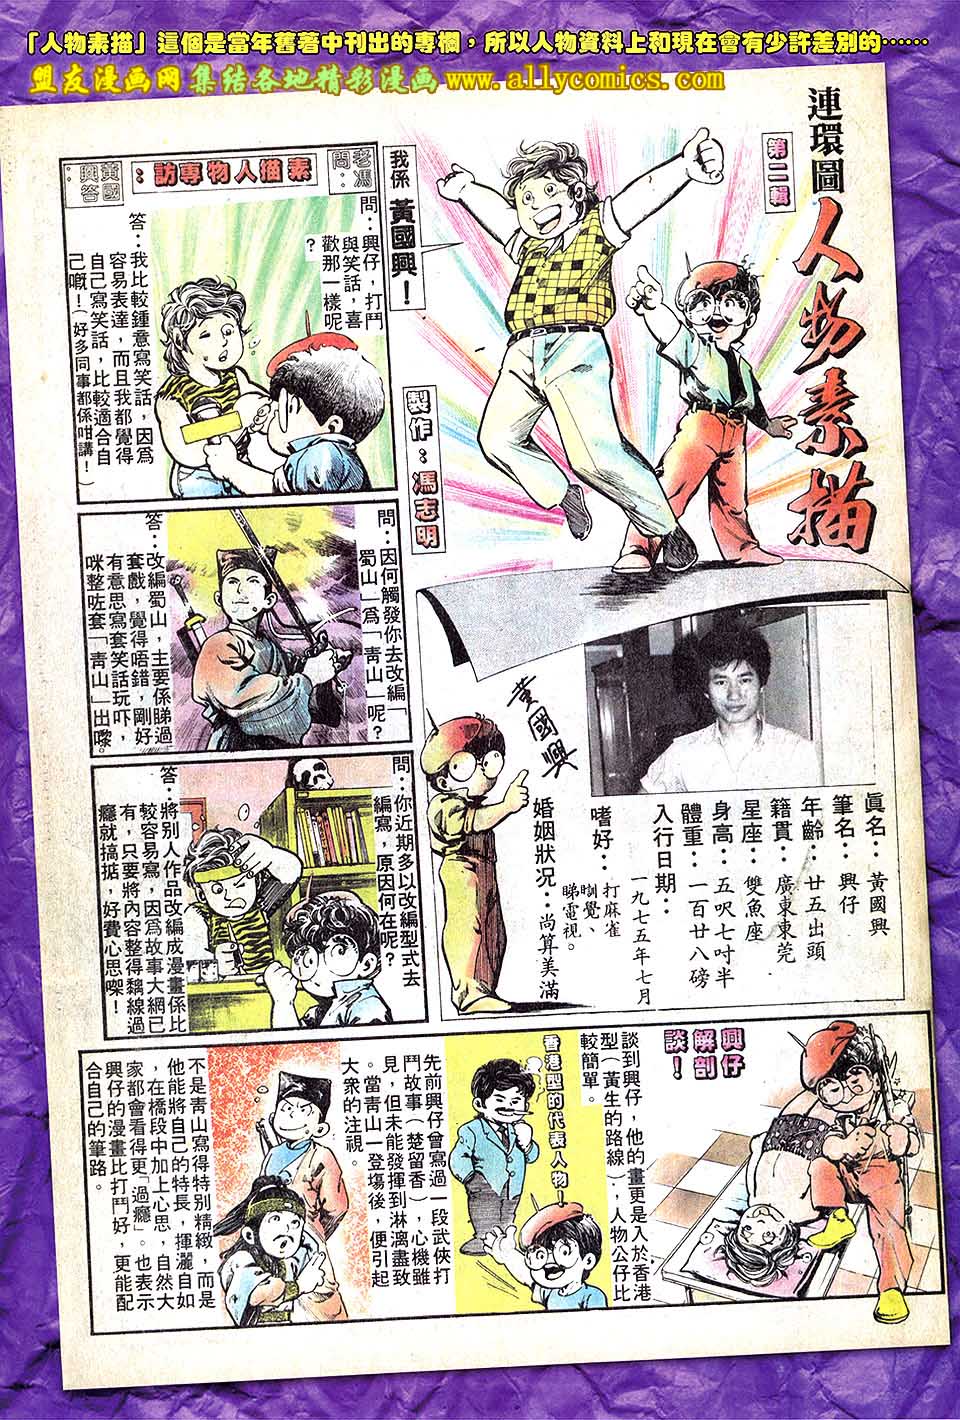 「人物素描」這個是當年舊著中刊出的專欄，所以人物資料上和現在會有少許差別的……
盟友漫画网 集结各地精彩漫画 www.allycomics.com
連環圖
人物素描
第二輯
我係黃國興！
製作：馮志明
素描人物專訪：
老馮問：
黃國興答：
問：興仔，打鬥
與笑話，喜
歡那一樣呢
？
答：我比較鍾意寫笑話，因為
容易表達，而且我都覺得
自己寫笑話，比較適合自
己嘅！（好多同事都係咁講！）
問：因何觸發你去改編「
蜀山」為「靑山」呢？
答：改編蜀山，主要係睇過
套戲，覺得唔錯，剛好
有意思寫套笑話玩吓，
咪整咗套「靑山」出嚟。
問：你近期多以改編型式去
編寫，原因何在呢？
答：將別人作品改編成漫畫係比
較容易寫，因為故事大網已
有，只要將內容整得黐線過
癮就搞掂，好費心思㗎！
眞名：黃國興
筆名：興仔
年齡：廿五出頭
籍貫：廣東東莞
星座：雙魚座
身高：五呎七吋半
體重：一百廿八磅
入行日期：
一九七五年七月
嗜好：打麻雀
瞓覺、
睇電視。
婚姻狀况：尚算美滿
黃國興
興仔
解剖
談！
談到興仔，他的畫更是入於香港
型（黃生的路線），人物公仔比
較簡單。
香港型的代表人物！
先前興仔曾寫過一段武俠打
鬥故事（楚留香），心機雖
見，但未能發揮到淋漓盡致
。當靑山一登塲後，便引起
大衆的注視。
不是靑山寫得特別精緻，而是
他能將自己的特長，揮灑自如
，在橋段中加上心思，自然大
家都會看得更「過癮」。也表示
興仔的漫畫比打鬥好，更能配
合自己的筆路。